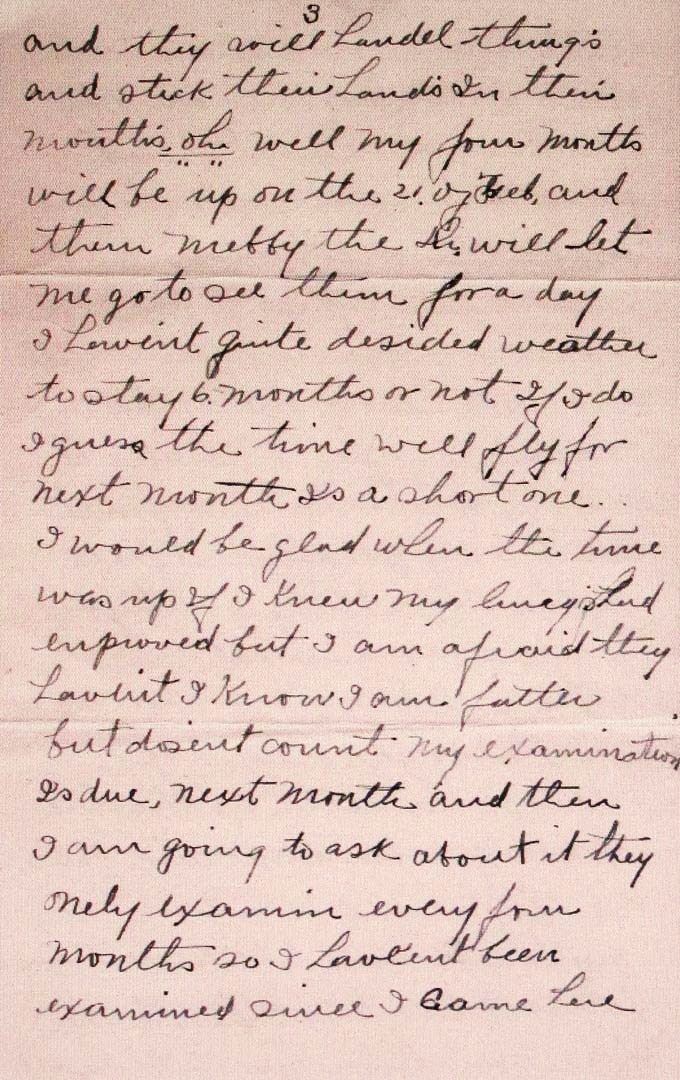 3
and they will handel things
and stick their hands In their
mouths, oh well my four months
will be up on the 21. of Feb, and
then mebby the Dr, will let
me go to see them for a day
I havent quite desided weather
to stay 6. months or not If I do
I guess the time will fly for
next month Is a short one.
I would be glad when the time
was up If I Knew my lungs had
enproved but I am afraid they
havent I Know I am fatter
but dosent count my examination
Is due, next month and then
I am going to ask about it they
onely examin every four
months so I havent been
examined since I Came here